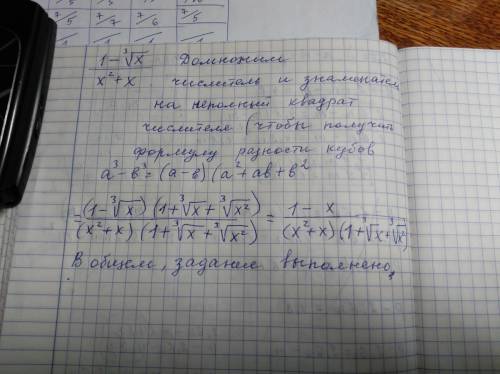 7/5 7/5 7/7 7/6 7/5
1 1 1 1
(1-∛x)/(x²+x) Домножим
числитель и знаменатель
на неполный квадрат
числителя (чтобы получить
формулу разности кубов
a³-b³=(a-b)(a²+ab+b²
=((1-∛x)(1+∛x+∛x²))/((x²+x)(1+∛x+∛x²)) = (1-x)/((x²+x)(1+∛x+∛x²)
В общем, задание выполнено,